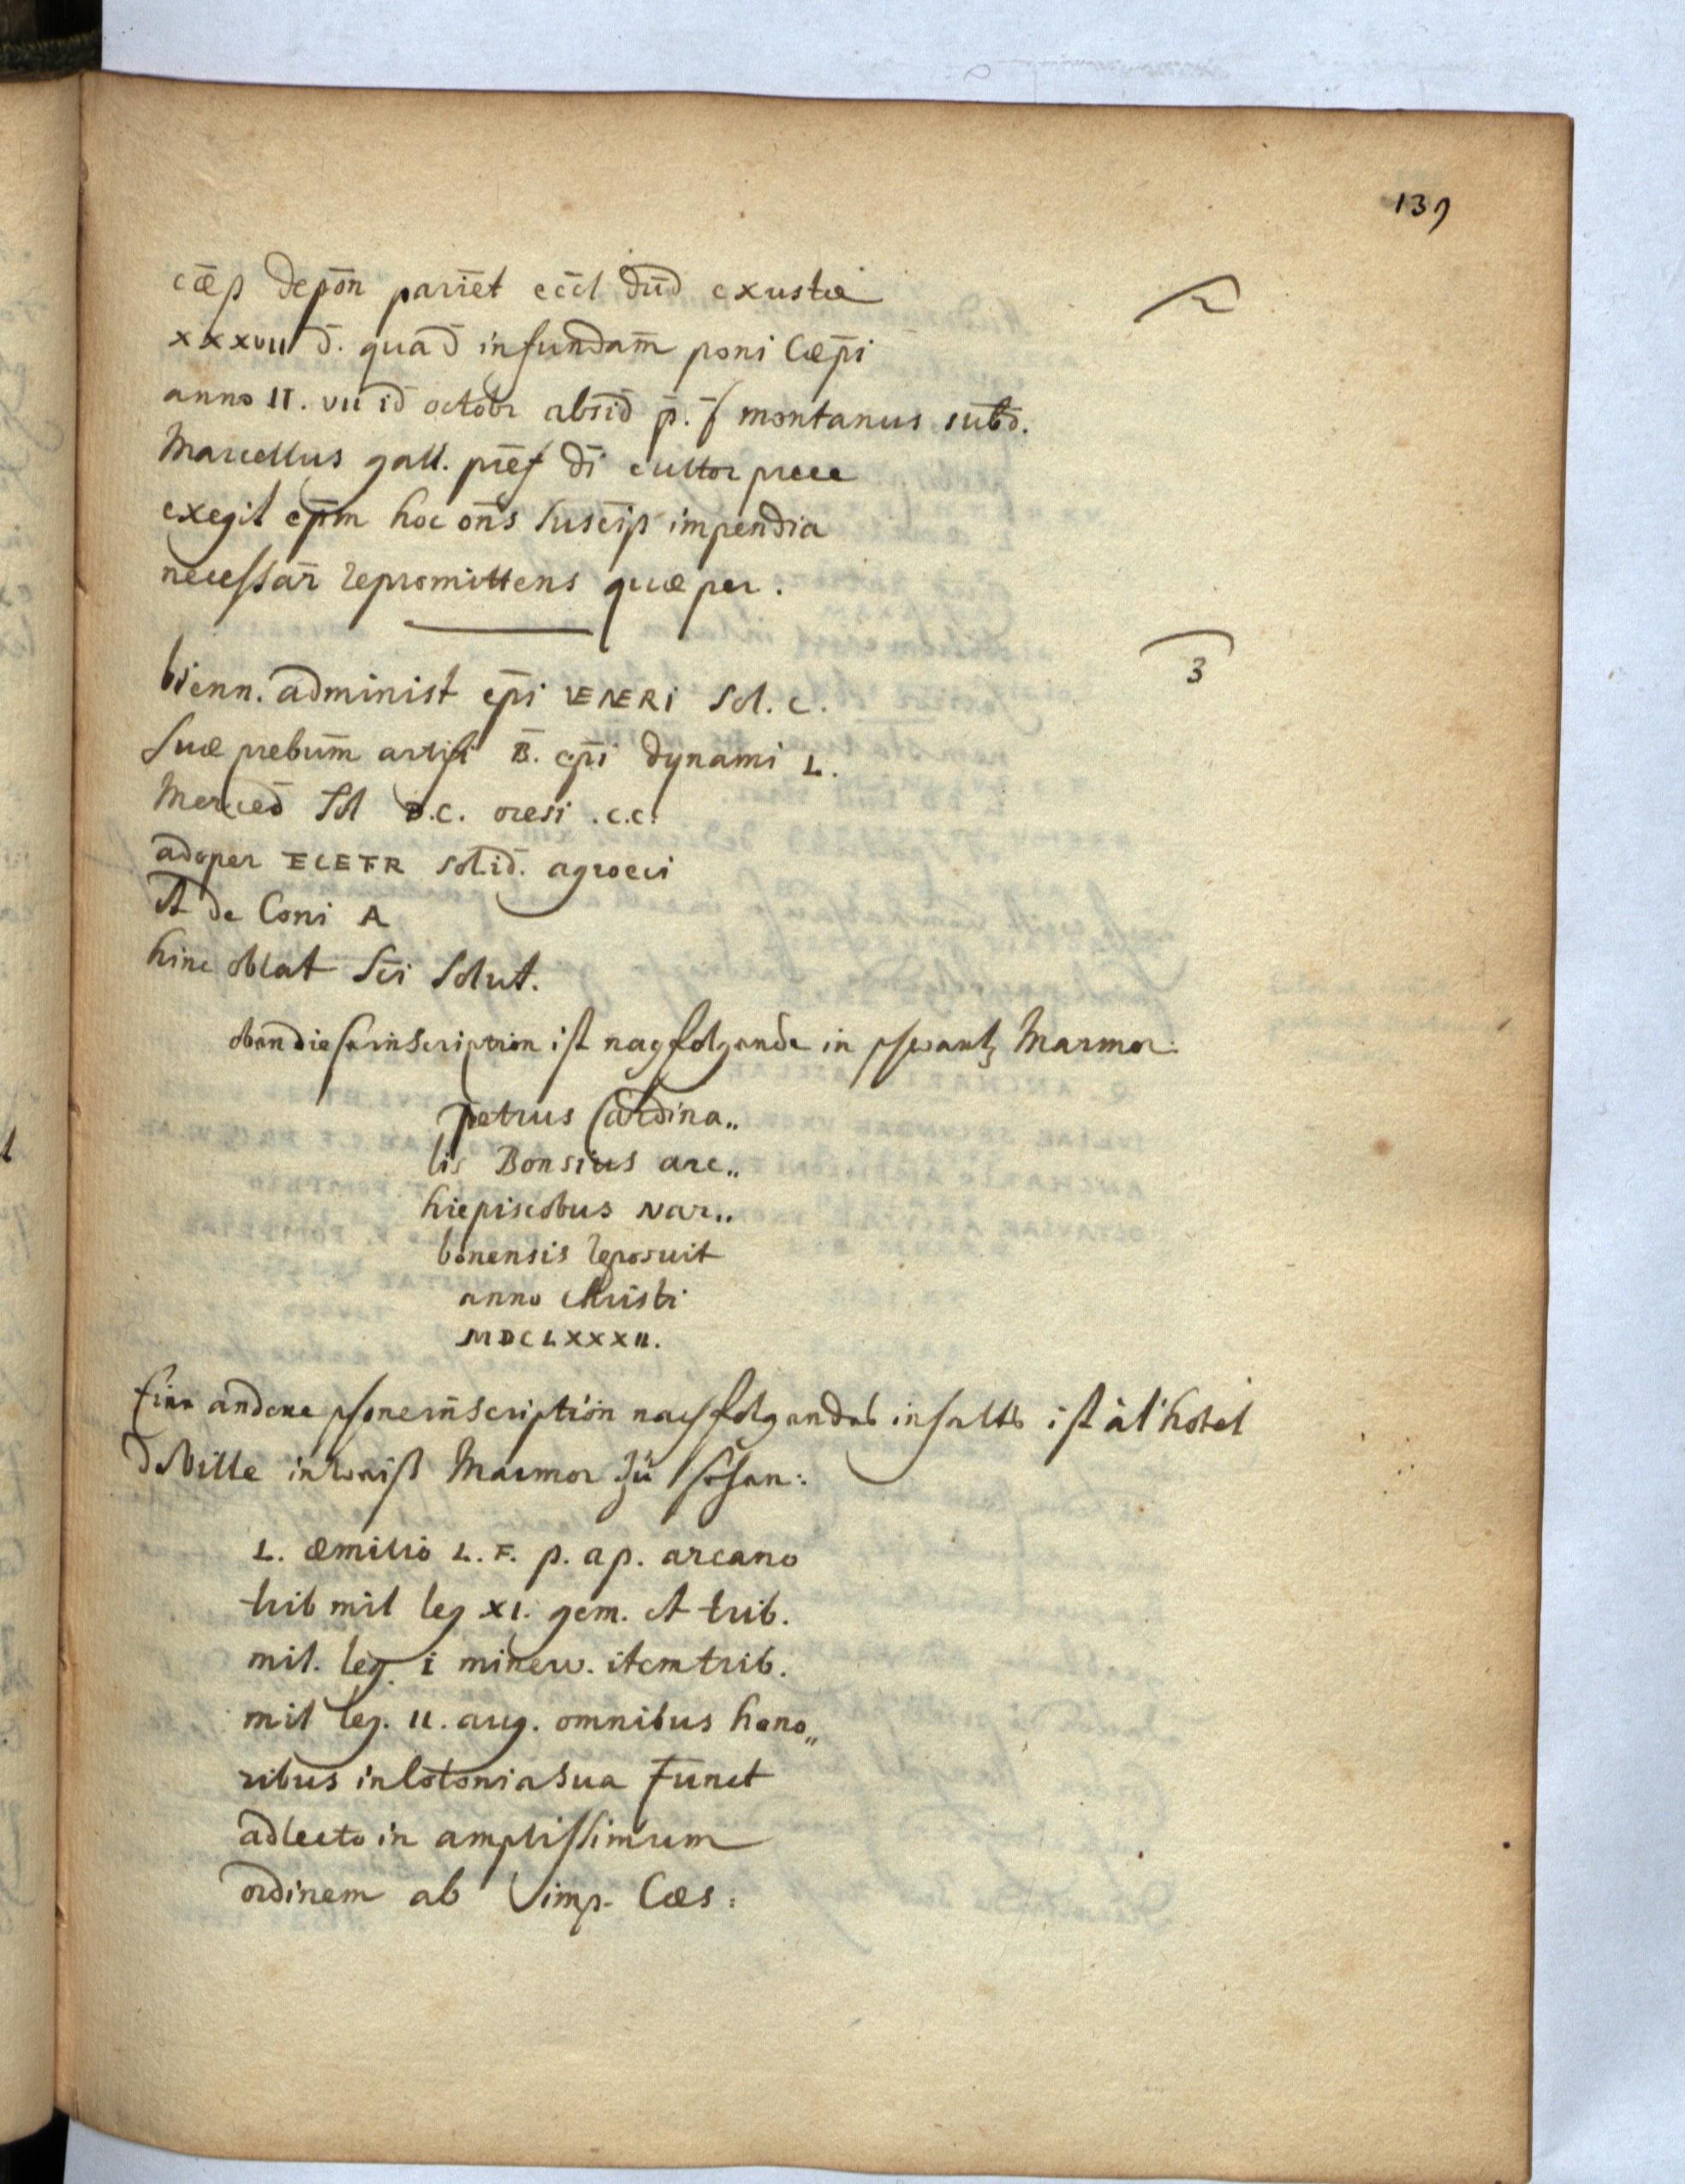 139
cǣp depōn pariēt eccl̄ dūd exustæ
2
xxxvii d̄. quad̄ in fundam̄ poni Cæp̄i
anno II. vii id̄ octobr absid̄ p̄. f̄ montanus subd̄.
Marcellus gall. prēf dī cultor prece
exegit ep̄m hoc on̄s suscīp impendia
necessar̄ repromittens quæ per.
bienn. administ ep̄i VENERI Sol. c.
3
suæ prebum̄ artifi B̄. ep̄i dynami L.
Merced̄ Sol D.C. oresi .c.c.
adoper ECETR solid̄. agroeci
et de Coni A
hinc oblat Sc̄i Solut.
oben dieser inscription ist nachfolgende in schwartz Marmor:
Petrus Cardina„
lis Bonsius arc„
hiepiscobus Nar„
bonensis reposuit
anno christi
MDCLXXXII.
Eine andere schöne inscription nachfolgendes inhalts ist à l'hotel
de Ville in weiß Marmor zu sehen:
L. æmilio L. F. p. ap. arcano
trib mil leg XI. gem. et trib.
mil. leg. i minerv. item trib.
mil leg. II. aug. omnibus hono„
ribus in Colonia sua Funct
adlecto in amplissimum
ordinem ab imp. Cæs: